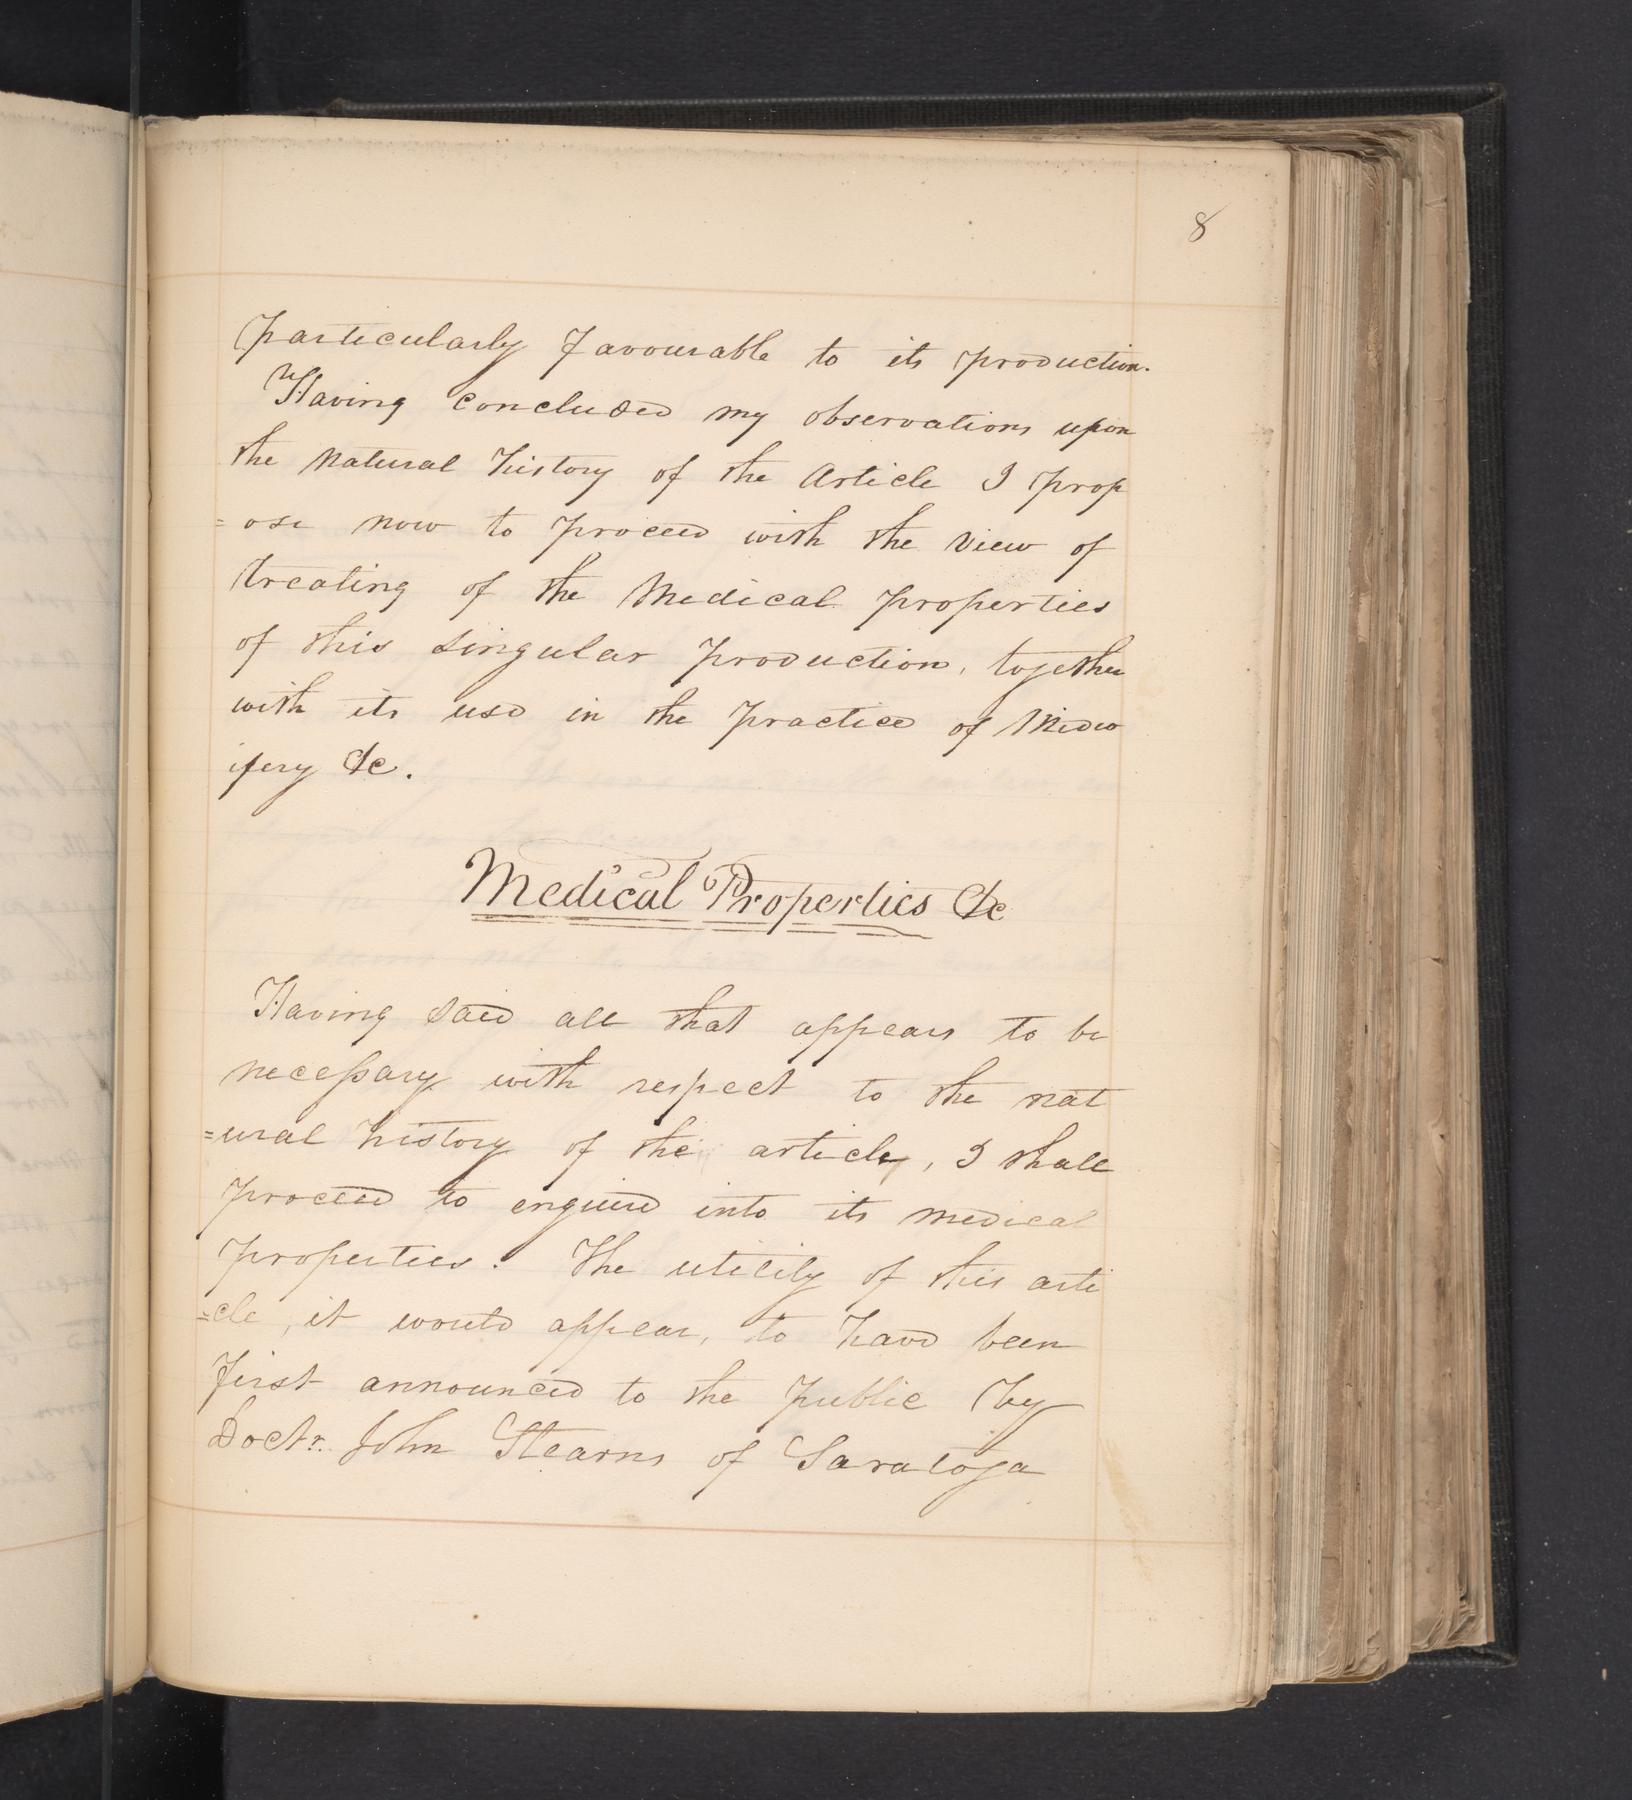 8
particularly favourable to its production.
Having concluded my observations upon
the natural history of the Article I prop
=ose now to proceed with the view of
treating of the Medical properties
of this singular production, together
with its use in the practice of Midw
ifery &c.
Medical Properties &c
Having said all that appears to be
necessary with respect to the nat
=ural history of the article, I shall
proceed to enquire into its medical
properties. The utility of this arti
=cle, it would appear, to have been
first announced to the public by
Doctr. John Stearns of Saratoga